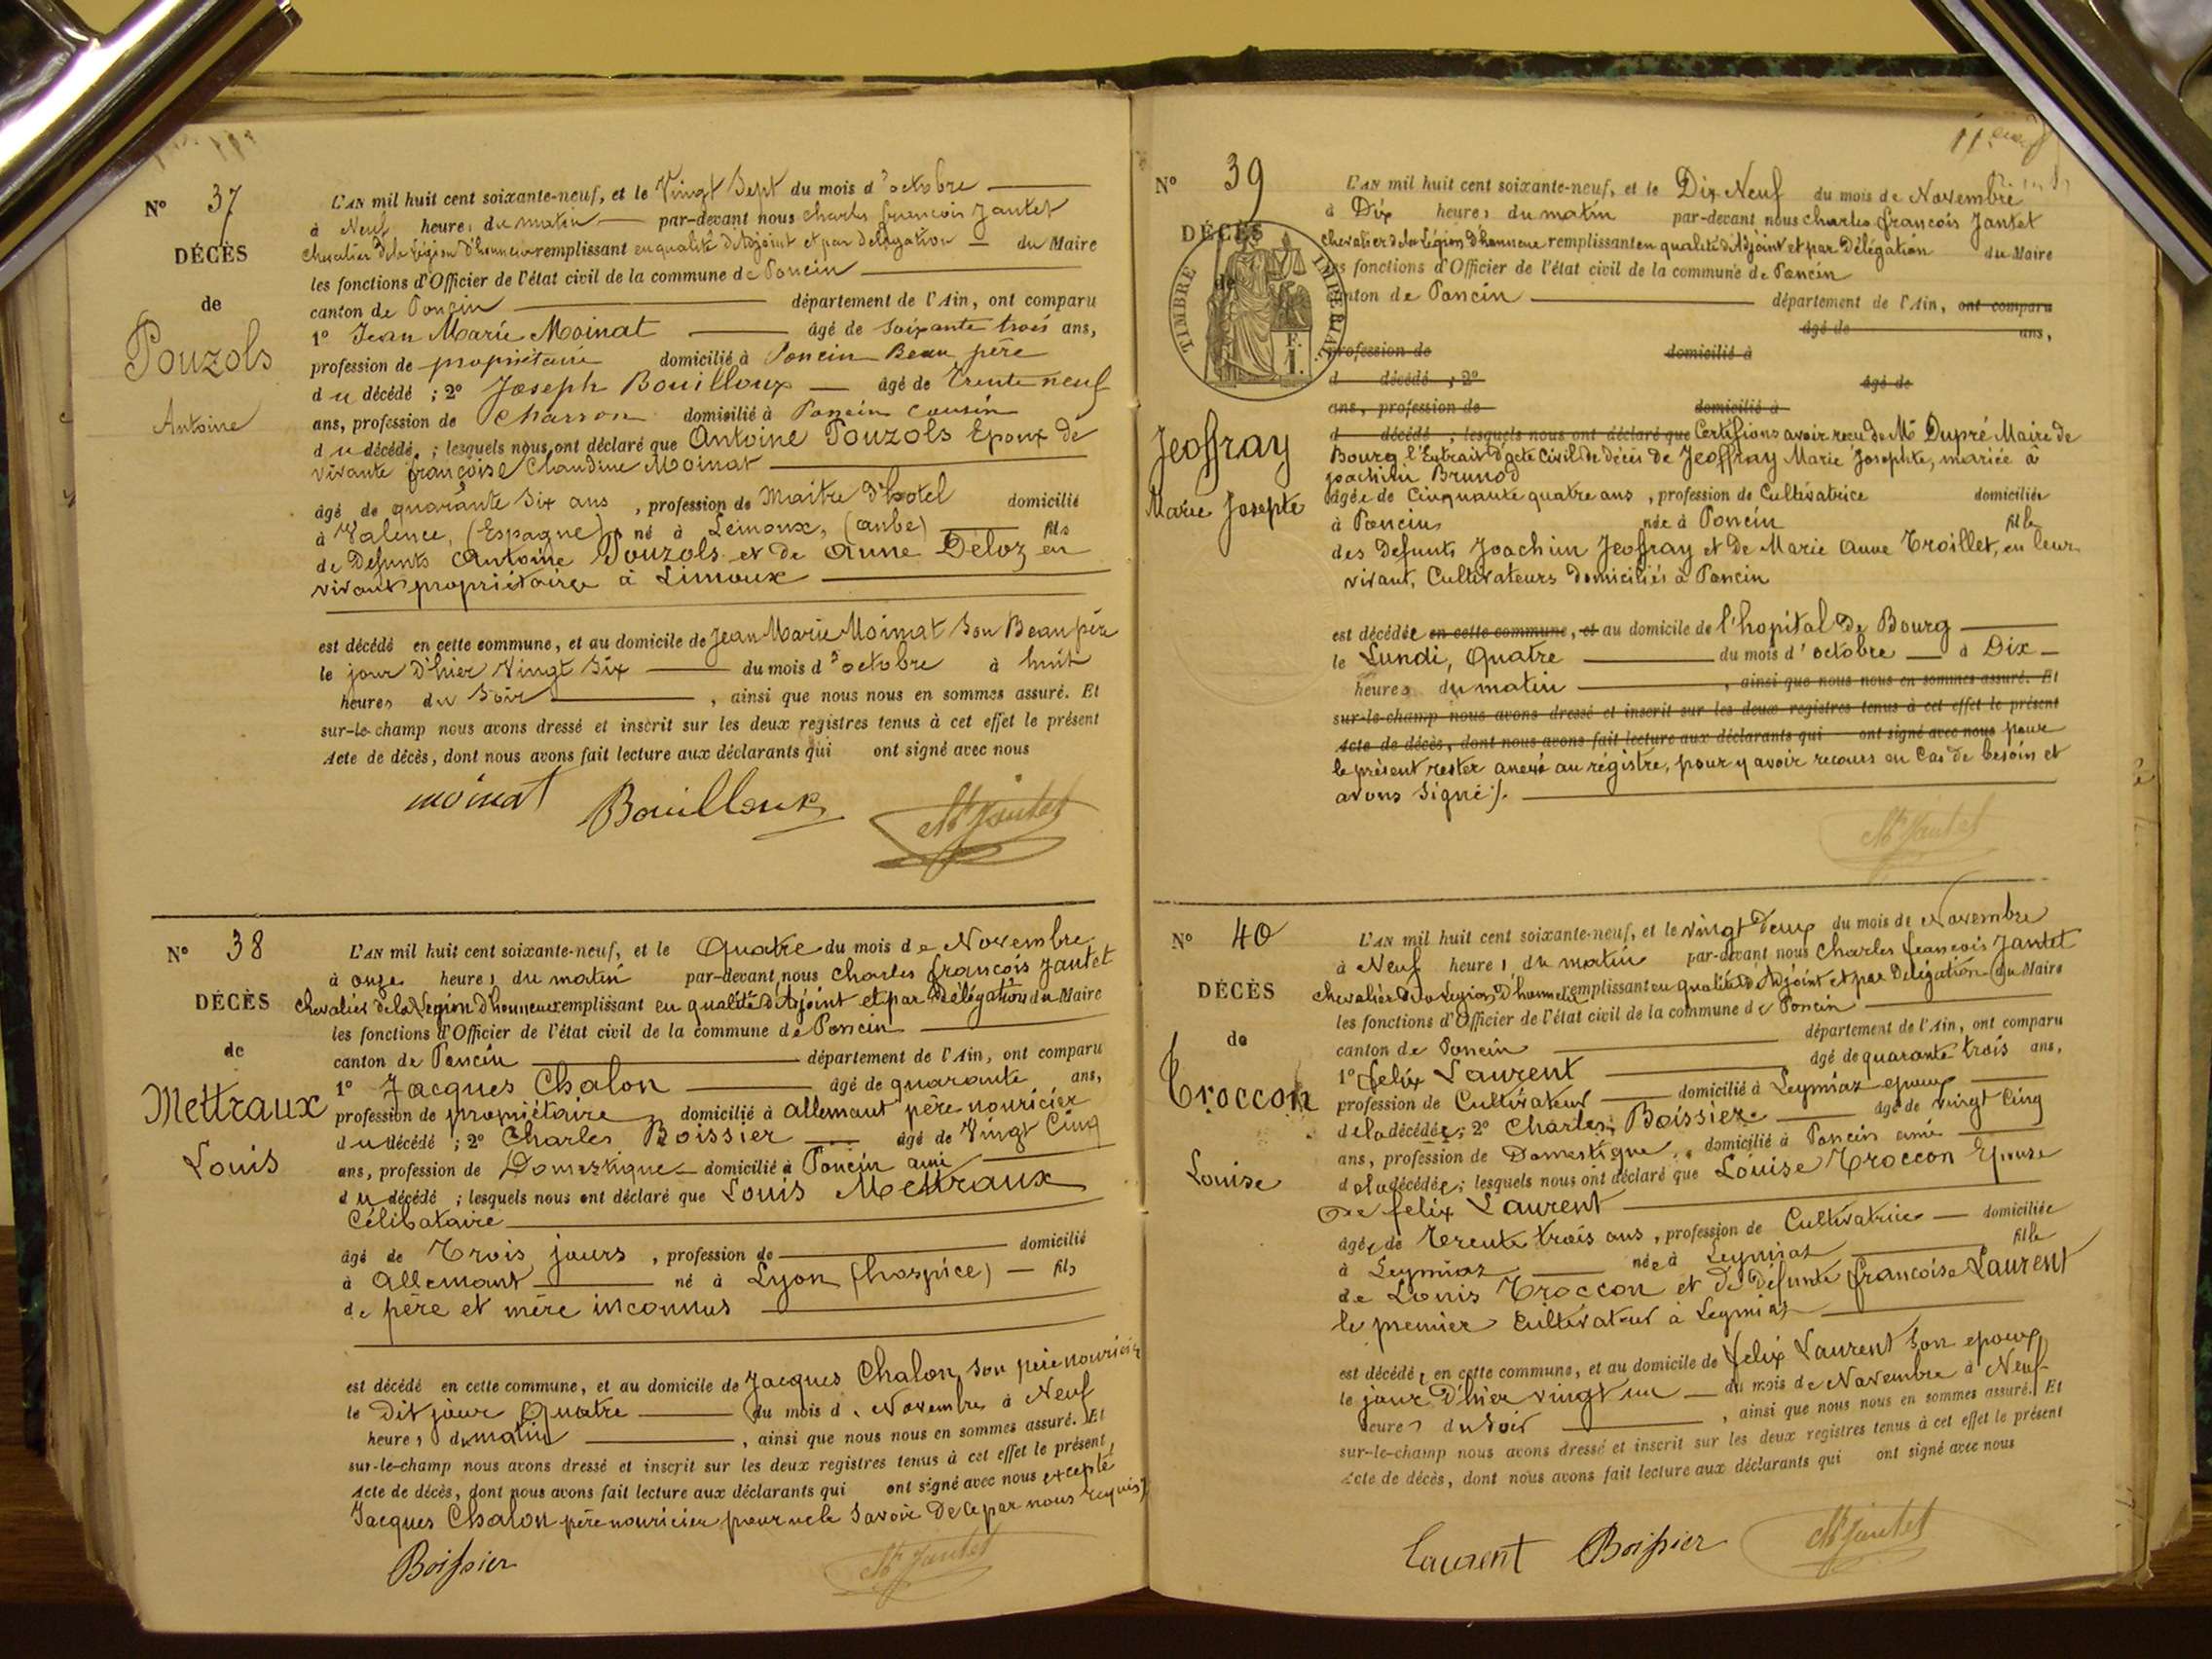 N° 37
DÉCÈS
de
Pouzols
Antoine
L'AN mil huit cent soixante-neuf, et le Vingt Sept du mois d'octobre
à Neuf heures du matin par-devant nous Charles françois Jantet
Chevalier de la Légion d'honneur remplissant en qualité d'Adjoint et par délégation du Maire
les fonctions d'Officier de l'état civil de la commune de Poncin
canton de Poncin département de l'Ain, ont comparu
1° Jean Marie Moinat âgé de soixante trois ans,
profession de propriétaire domicilié à Poncin Beau père
du décédé ; 2° Joseph Bouilloux âgé de Trente neuf
ans, profession de Charron domicilié à Poncin Cousin
du décédé ; lesquels nous ont déclaré que Antoine Pouzols Epoux de
vivante françoise Claudine Moinat
âgé de quarante Six ans , profession de Maitre d'hotel domicilié
à Valence, (Espagne) né à Lemoux, (aube) fils
de Defunts Antoine Pouzols et de Anne Deloz en
vivant propriétaire à Limoux
est décédé en cette commune, et au domicile de Jean Marie Moinat Son Beau père
le jour d'hier Vingt Six du mois d'octobre à huit
heures du Soir , ainsi que nous nous en sommes assuré. Et
sur-le-champ nous avons dressé et inscrit sur les deux registres tenus à cet effet le présent
Acte de décès, dont nous avons fait lecture aux déclarants qui ont signé avec nous
moinat Bouilloux Jantet
N° 38
DÉCÈS
de
Mettraux
Louis
L'AN mil huit cent soixante-neuf, et le Quatre du mois de Novembre
à onze heures du matin par-devant nous Charles françois Jantet
Chevalier de la Légion d'honneur remplissant en qualité d'Adjoint et par Délégation du Maire
les fonctions d'Officier de l'état civil de la commune de Poncin
canton de Poncin département de l'Ain, ont comparu
1° Jacques Chalon âgé de quarante ans,
profession de propriétaire domicilié à allemant père nouricier
du décédé ; 2° Charles Boissier âgé de Vingt Cinq
ans, profession de Domestique domicilié à Poncin ami
du décédé ; lesquels nous ont déclaré que Louis Mettraux
Célibataire
âgé de Trois jours , profession de domicilié
à Allemant né à Lyon (hospice) fils
de père et mère inconnus
est décédé en cette commune, et au domicile de Jacques Chalon, Son père nouricier
le Dit jour Quatre du mois de Novembre à Neuf
heures du matin , ainsi que nous nous en sommes assuré. Et
sur-le-champ nous avons dressé et inscrit sur les deux registres tenus à cet effet le présent
Acte de décès, dont nous avons fait lecture aux déclarants qui ont signé avec nous excepté
Jacques Chalon père nouricier pour ne le Savoir De ce par nous requis
Boissier Jantet
N° 39
DÉCÈS
de
TIMBRE IMPERIAL
F.
1.
Jeoffray
Marie Josepte
L'AN mil huit cent soixante-neuf, et le Dix Neuf du mois de Novembre
à Dix heures du matin par-devant nous Charles françois Jantet
Chevalier de la Légion d'honneur remplissant en qualité d'Adjoint et par Délégation du Maire
les fonctions d'Officier de l'état civil de la commune de Poncin
canton de Poncin département de l'Ain, ont comparu
âgé de ans,
profession de domicilié à
d décédé ; 2° âgé de
ans, profession de domicilié à
d décédé ; lesquels nous ont déclaré que Certifions avoir recu de Mr Dupré Maire de
Bourg l'Extrait d'acte Civil de décès de Jeoffray Marie Josephte, mariée à
joachim Brunod
âgée de Cinquante quatre ans , profession de Cultivatrice domiciliée
à Poncin née à Poncin fille
des defunts Joachim Jeoffray et de Marie Anne Troillet, en leur
vivant, Cultivateurs domiciliés à Poncin
est décédée en cette commune, et au domicile de l'hopital de Bourg
le Lundi, Quatre du mois d'octobre à Dix
heures du matin , ainsi que nous nous en sommes assuré. Et
sur-le-champ nous avons dressé et inscrit sur les deux registres tenus à cet effet le présent
Acte de décès, dont nous avons fait lecture aux déclarants qui ont signé avec nous pour
le présent rester anexé au régistre, pour y avoir recours en Cas de besoin et
avons Signé
Jantet
N° 40
DÉCÈS
de
Troccon
Louise
L'AN mil huit cent soixante-neuf, et le vingt deux du mois de Novembre
à Neuf heures du matin par-devant nous Charles françois Jantet
Chevalier de la Légion d'honneur remplissant en qualité d'Adjoint et par Délégation du Maire
les fonctions d'Officier de l'état civil de la commune de Poncin
canton de Poncin département de l'Ain, ont comparu
1° felix Laurent âgé de quarante trois ans,
profession de Cultivateur domicilié à Leymiaz epoux
de la décédée ; 2° Charles Boissier âgé de vingt Cinq
ans, profession de Domestique domicilié à Poncin ami
de la décédée ; lesquels nous ont déclaré que Louise Troccon Epouse
De felix Laurent
âgée de Trente trois ans , profession de Cultivatrice domiciliée
à Leymiaz née à Leymiaz fille
de Louis Troccon et de Defunte françoise Laurent
le premier Cultivateur à Leymiaz
est décédée en cette commune, et au domicile de felix Laurent Son epoux
le jour d'hier vingt un du mois de Novembre à Neuf
heures du Soir , ainsi que nous nous en sommes assuré. Et
sur-le-champ nous avons dressé et inscrit sur les deux registres tenus à cet effet le présent
Acte de décès, dont nous avons fait lecture aux déclarants qui ont signé avec nous
Laurent Boissier Jantet